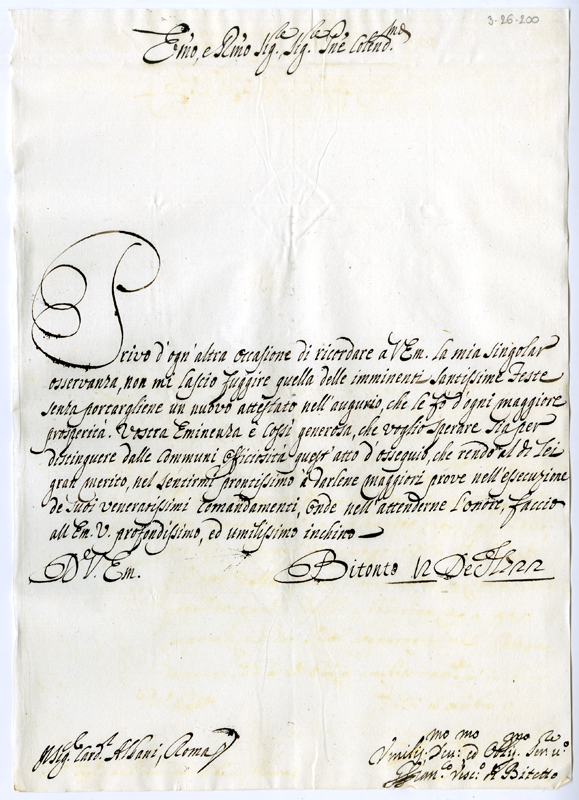 3-26-200
Em̃o, e Rm̃o Sig.re Sig.re Pñe Colend.mo
Privo d'ogn'altra occasione di ricordare a V Em. la mia singolar
osservanza, non mi lascio fuggire quella delle imminenti Santissime Feste
senza portargliene un nuovo attestato nell'augurio, che le fò d'ogni maggiore
prosperità. Vostra Eminenza è cossì generosa, che voglio sperare sia per
distinguere dalle communi officiosità quest'atto d'ossequio, che rendo al di Lei
gran merito, nel sentirmi prontissimo à darlene maggiori prove nell'essecuzione
de suoi veneratissimi comandamenti, onde nell'attenderne l'onore, faccio
all'Em. V. profondissimo, ed umilissimo inchino
D V. Em. Bitonto 12 Dē 1722
Sig. Card. Albani, Roma
Vmiliss.mo Dev.mo ed Obblig.mo Ser.re v.o
Fran.co Vesc.o di Bitetto